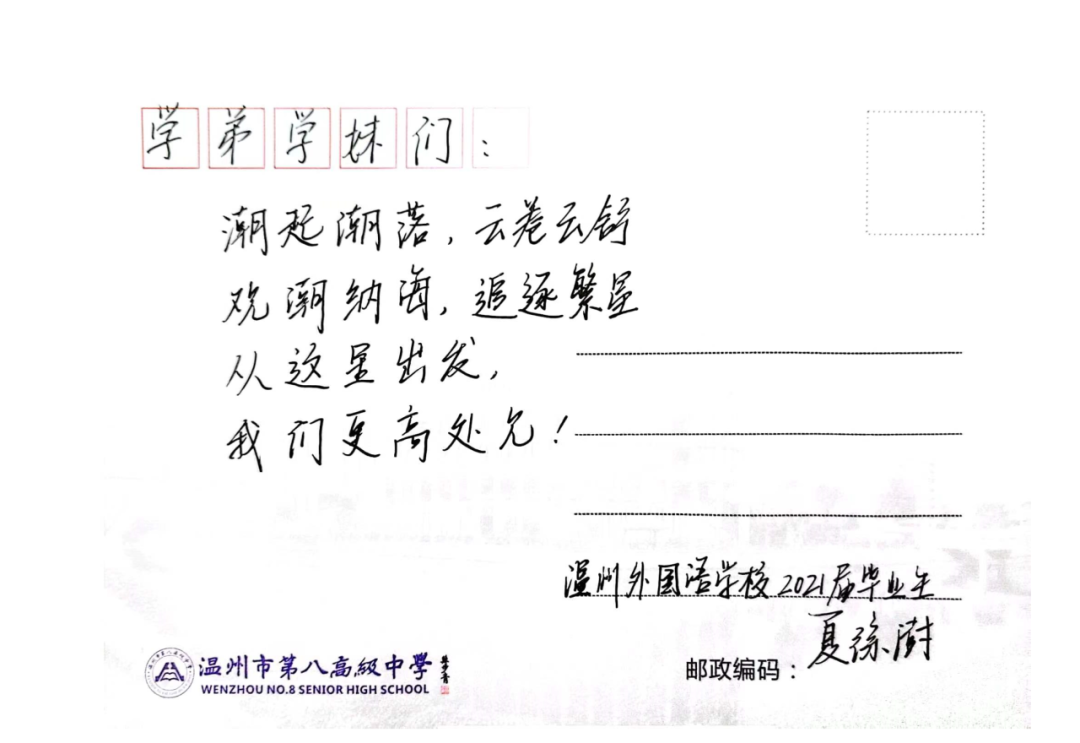 学弟学妹们：
潮起潮落，云卷云舒
观潮纳海，追逐繁星
从这里出发，
我们更高处见！
温州外国语学校2021届毕业生
夏徐澍
邮政编码：
温州市第八高级中學
WENZHOU NO.8 SENIOR HIGH SCHOOL